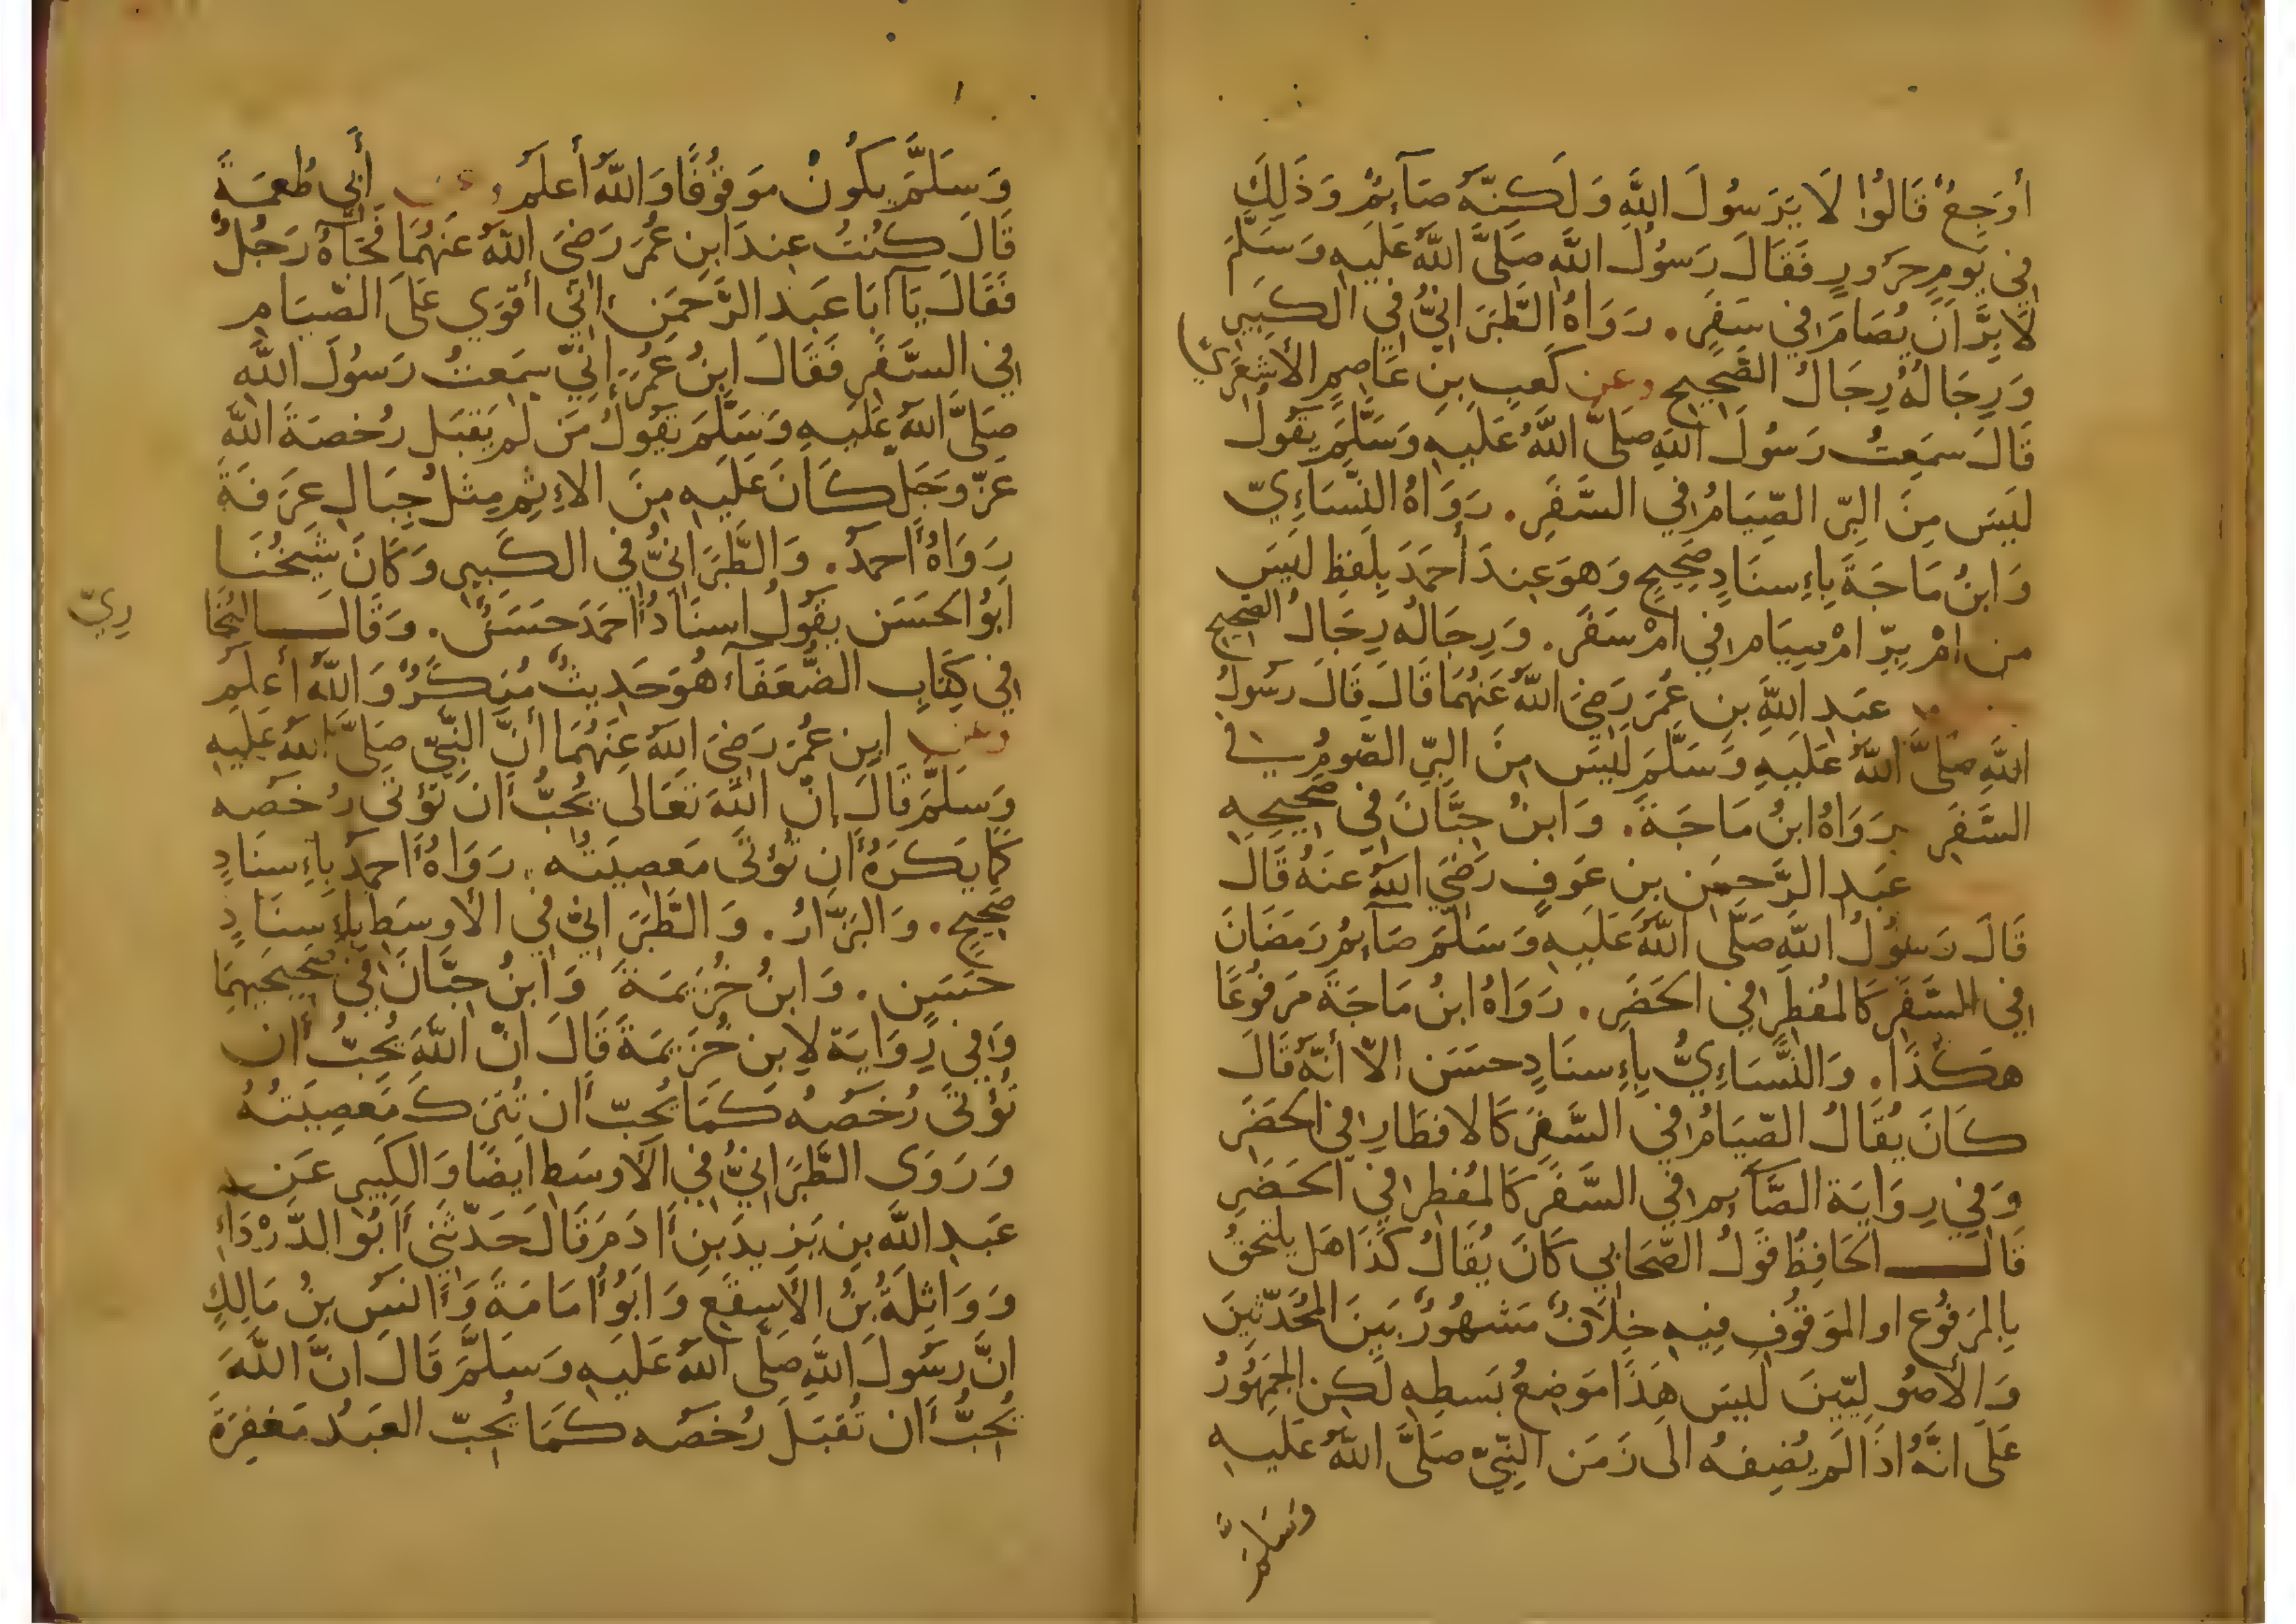 أوَجِعٌ قَالُوا لَا يَرَسُولَ اللَّهِ وَلَكِنَّهُ صَآئِمٌ وَذَلِكَ
فِي يَومٍ حَرُورٍ فَقَالَ رَسُولُ اللَّهِ صَلَّى اللَّهُ عَلَيهِ وَسَلَّمَ
لَا بِرَّ أَن يُصَامَ فِي سَفَرٍ. رَوَاهُ الطَّبَرَانِيُّ فِي الكَبِيرِ
وَرِجَالُهُ رِجَالُ الصَّحِيحِ وعن كَعبِ بنِ عَاصِمٍ الأَشعَرِيِّ
قَالَ سَمِعتُ رَسُولَ اللَّهِ صَلَّى اللَّهُ عَلَيهِ وَسَلَّمَ يَقُولُ
لَيسَ مِنَ البِرِّ الصِّيَامُ فِي السَّفَرِ. رَوَاهُ النَّسَاءِيّ
وَابنُ مَاجَةَ بِإِسنَادٍ صَحِيحٍ وَهوَ عِندَ أَحمَدَ بِلَفظِ لَيسَ
من امْ بِرِّ امْ صِيَام فِي امْ سَفَر. وَرِجَالُه رِجَالُ الصَّحِيحِ
عَبدِ اللَّهِ بنِ عُمَرَ رَضِيَ اللَّهُ عَنهُمَا قَالَ قَالَ رَسُولُ
اللَّهِ صَلَّى اللَّهُ عَلَيهِ وَسَلَّمَ لَيسَ مِنَ البِرِّ الصَّومُ في
السَّفَرِ رَوَاهُ ابنُ مَاجَةَ. وَابنُ حِبَّانَ فِي صَحِيحِهِ
عَبدِ الرَّحمَن بن عَوفٍ رَضِيَ اللَّهُ عَنهُ قَالَ
قَالَ رَسُولُ اللَّهِ صَلَّى اللَّهُ عَلَيهِ وَسَلَّمَ صَآئِمُ رَمَضَانَ
فِي السَّفَرِ كَالمُفطِرِ فِي الحَضَرِ. رَوَاهُ ابنُ مَاجَةَ مَرفُوعًا
هَكَذَا. وَالنَّسَاءِيُّ بِإِسنَادٍ حسَن الاّ أَنَّهُ قَالَ
كَانَ يُقَالُ الصِّيَامُ فِي السَّفَرِ كَالافطَارِ فِي الحَضَرِ
وَفِي رِوَايَة الصَّآئِم فِي السَّفَرِ كَالمُفطِرِ فِي الحَضَرِ
قَالَ الحَافِظُ قَولُ الصَّحَابي كَانَ يُقَالُ كَذَا هَل يَلتَحقُ
بِالمَرفُوعِ او المَوقُوفِ فِيهِ خِلَافٌ مَشهُورٌ بَينَ المُحَدِّثِينَ
وَالأُصُولِيِّينَ لَيسَ هَذَا مَوضِعُ بَسطِهِ لَكِن الجُمهُورُ
عَلَى انَّهُ اذَا لَم يُضِفهُ الَى زَمَنِ النَّبِيِّ صَلَّى اللَّهُ عَلَيهِ
وَسَلَّمَ
وَسَلَّمَ يَكُونُ مَوقُوفًا وَاللَّهُ أَعلَمُ وعن أَبِي طُعمَةَ
قَالَ كُنتُ عِندَ ابنِ عُمَرَ رَضِيَ اللَّهُ عَنهُمَا فَجَآءَهُ رَجُلٌ
فَقَالَ يَآ أَبَا عَبدِ الرَّحمَنِ إنِّي أَقوَي عَلَى الصِّيَامِ
فِي السَّفَرِ فَقَالَ ابنُ عُمَرَ إنِّي سَمِعتُ رَسُولَ اللَّهِ
صَلَّى اللَّهُ عَلَيهِ وَسَلَّمَ يَقُولُ مَن لَم يَقبَل رُخصَةَ اللَّهِ
عَزَّ وَجَلَّ كَانَ عَلَيهِ مِنَ الاِثمِ مِثلُ جِبَالِ عَرَفَةَ
رَوَاهُ احمَدُ. وَالطَّبَرَانِيُّ فِي الكَبِيرِ وَكَانَ شَيخُنَا
أَبُو الحَسَن يَقُولُ اسنَادُ احمَدَ حَسَنٌ. وَقَالَ البُخَا
رِيّ
فِي كِتَابِ الضُّعَفَآءِ هُوَ حَدِيثٌ مُنكَرٌ وَاللَّهُ أَعلَمُ
وعن ابنِ عُمَرَ رَضِيَ اللَّهُ عَنهُمَا أَنَّ النَّبِيَّ صَلَّى اللَّهُ عَلَيهِ
وَسَلَّمَ قَالَ إنَّ اللَّهَ تَعَالَى يُحِبُّ أَن تُؤتَى رُخَصُه
كَمَا يَكرَهُ أَن تُؤتَى مَعصِيَتُه. رَوَاهُ احمَدُ بِإِسنَادٍ
صَحِيحٍ. وَالبَزَّارُ. وَالطَّبَرَانِيُّ فِي الأَوسَطِ بِإِسنَادٍ
حَسَنٍ. وَابنُ خُزَيمَةَ وَابنُ حِبَّانَ فِي صَحِيحَيهِمَا
وَفِي رِوَايَة لِابنِ خُزَيمَةَ قَالَ انَّ اللَّهَ يُحِبُّ أَن
تُؤتَى رُخَصُه كَمَا يُحِبّ أَن تُترَكَ مَعصِيَتُهُ
وَرَوَى الطَّبَرَانِيُّ فِي الأَوسَطِ ايضًا وَالكَبِيرِ عَن
عَبدِ اللَّهِ بنِ يَزِيدَ بنِ أَدَمَ قَالَ حَدَّثَنِي أَبُو الدَّردَاءِ
وَوَاثِلَةُ بنُ الأَسقَعِ وَابُو أُمَامَةَ وَأَنَسُ بنُ مَالِكٍ
انَّ رَسُولَ اللَّهِ صَلَّى اللَّهُ عَلَيهِ وَسَلَّمَ قَالَ انَّ اللَّهَ
يُحِبُّ أَن تُقبَلَ رُخَصُه كَمَا يُحِبّ العَبدُ مَغفِرَةَ